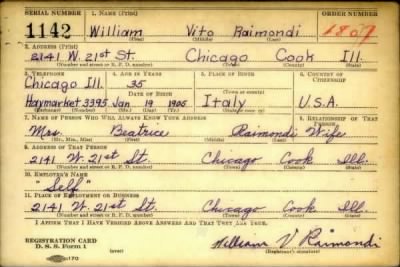 SERIAL NUMBER 1. NAME (Print) ORDER NUMBER
1142 William Vito Raimondi 1807
(First) (Middle) (Last)
2. ADDRESS (Print)
2141 W. 21st St. Chicago Cook Ill.
(Number and street or R. F. D. number) (Town) (County) (State)
3. TELEPHONE 4. AGE IN YEARS 5. PLACE OF BIRTH 6. COUNTRY OF CITIZENSHIP
Chicago Ill. 35
DATE OF BIRTH (Town or county)
Haymarket 3395 Jan 19 1905 Italy U.S.A.
(Exchange) (Number) (Mo.) (Day) (Yr.) (State or country)
7. NAME OF PERSON WHO WILL ALWAYS KNOW YOUR ADDRESS 8. RELATIONSHIP OF THAT PERSON
Mrs. Beatrice Raimondi Wife
(Mr., Mrs., Miss) (First) (Middle) (Last)
9. ADDRESS OF THAT PERSON
2141 W. 21st St. Chicago Cook Ill.
(Number and street or R. F. D. number) (Town) (County) (State)
10. EMPLOYER'S NAME
"Self"
11. PLACE OF EMPLOYMENT OR BUSINESS
2141 W. 21st St. Chicago Cook Ill.
(Number and street or R. F. D. number) (Town) (County) (State)
I AFFIRM THAT I HAVE VERIFIED ABOVE ANSWERS AND THAT THEY ARE TRUE.
REGISTRATION CARD
D. S. S. Form 1 (over) William V Raimondi
(Registrant's signature)